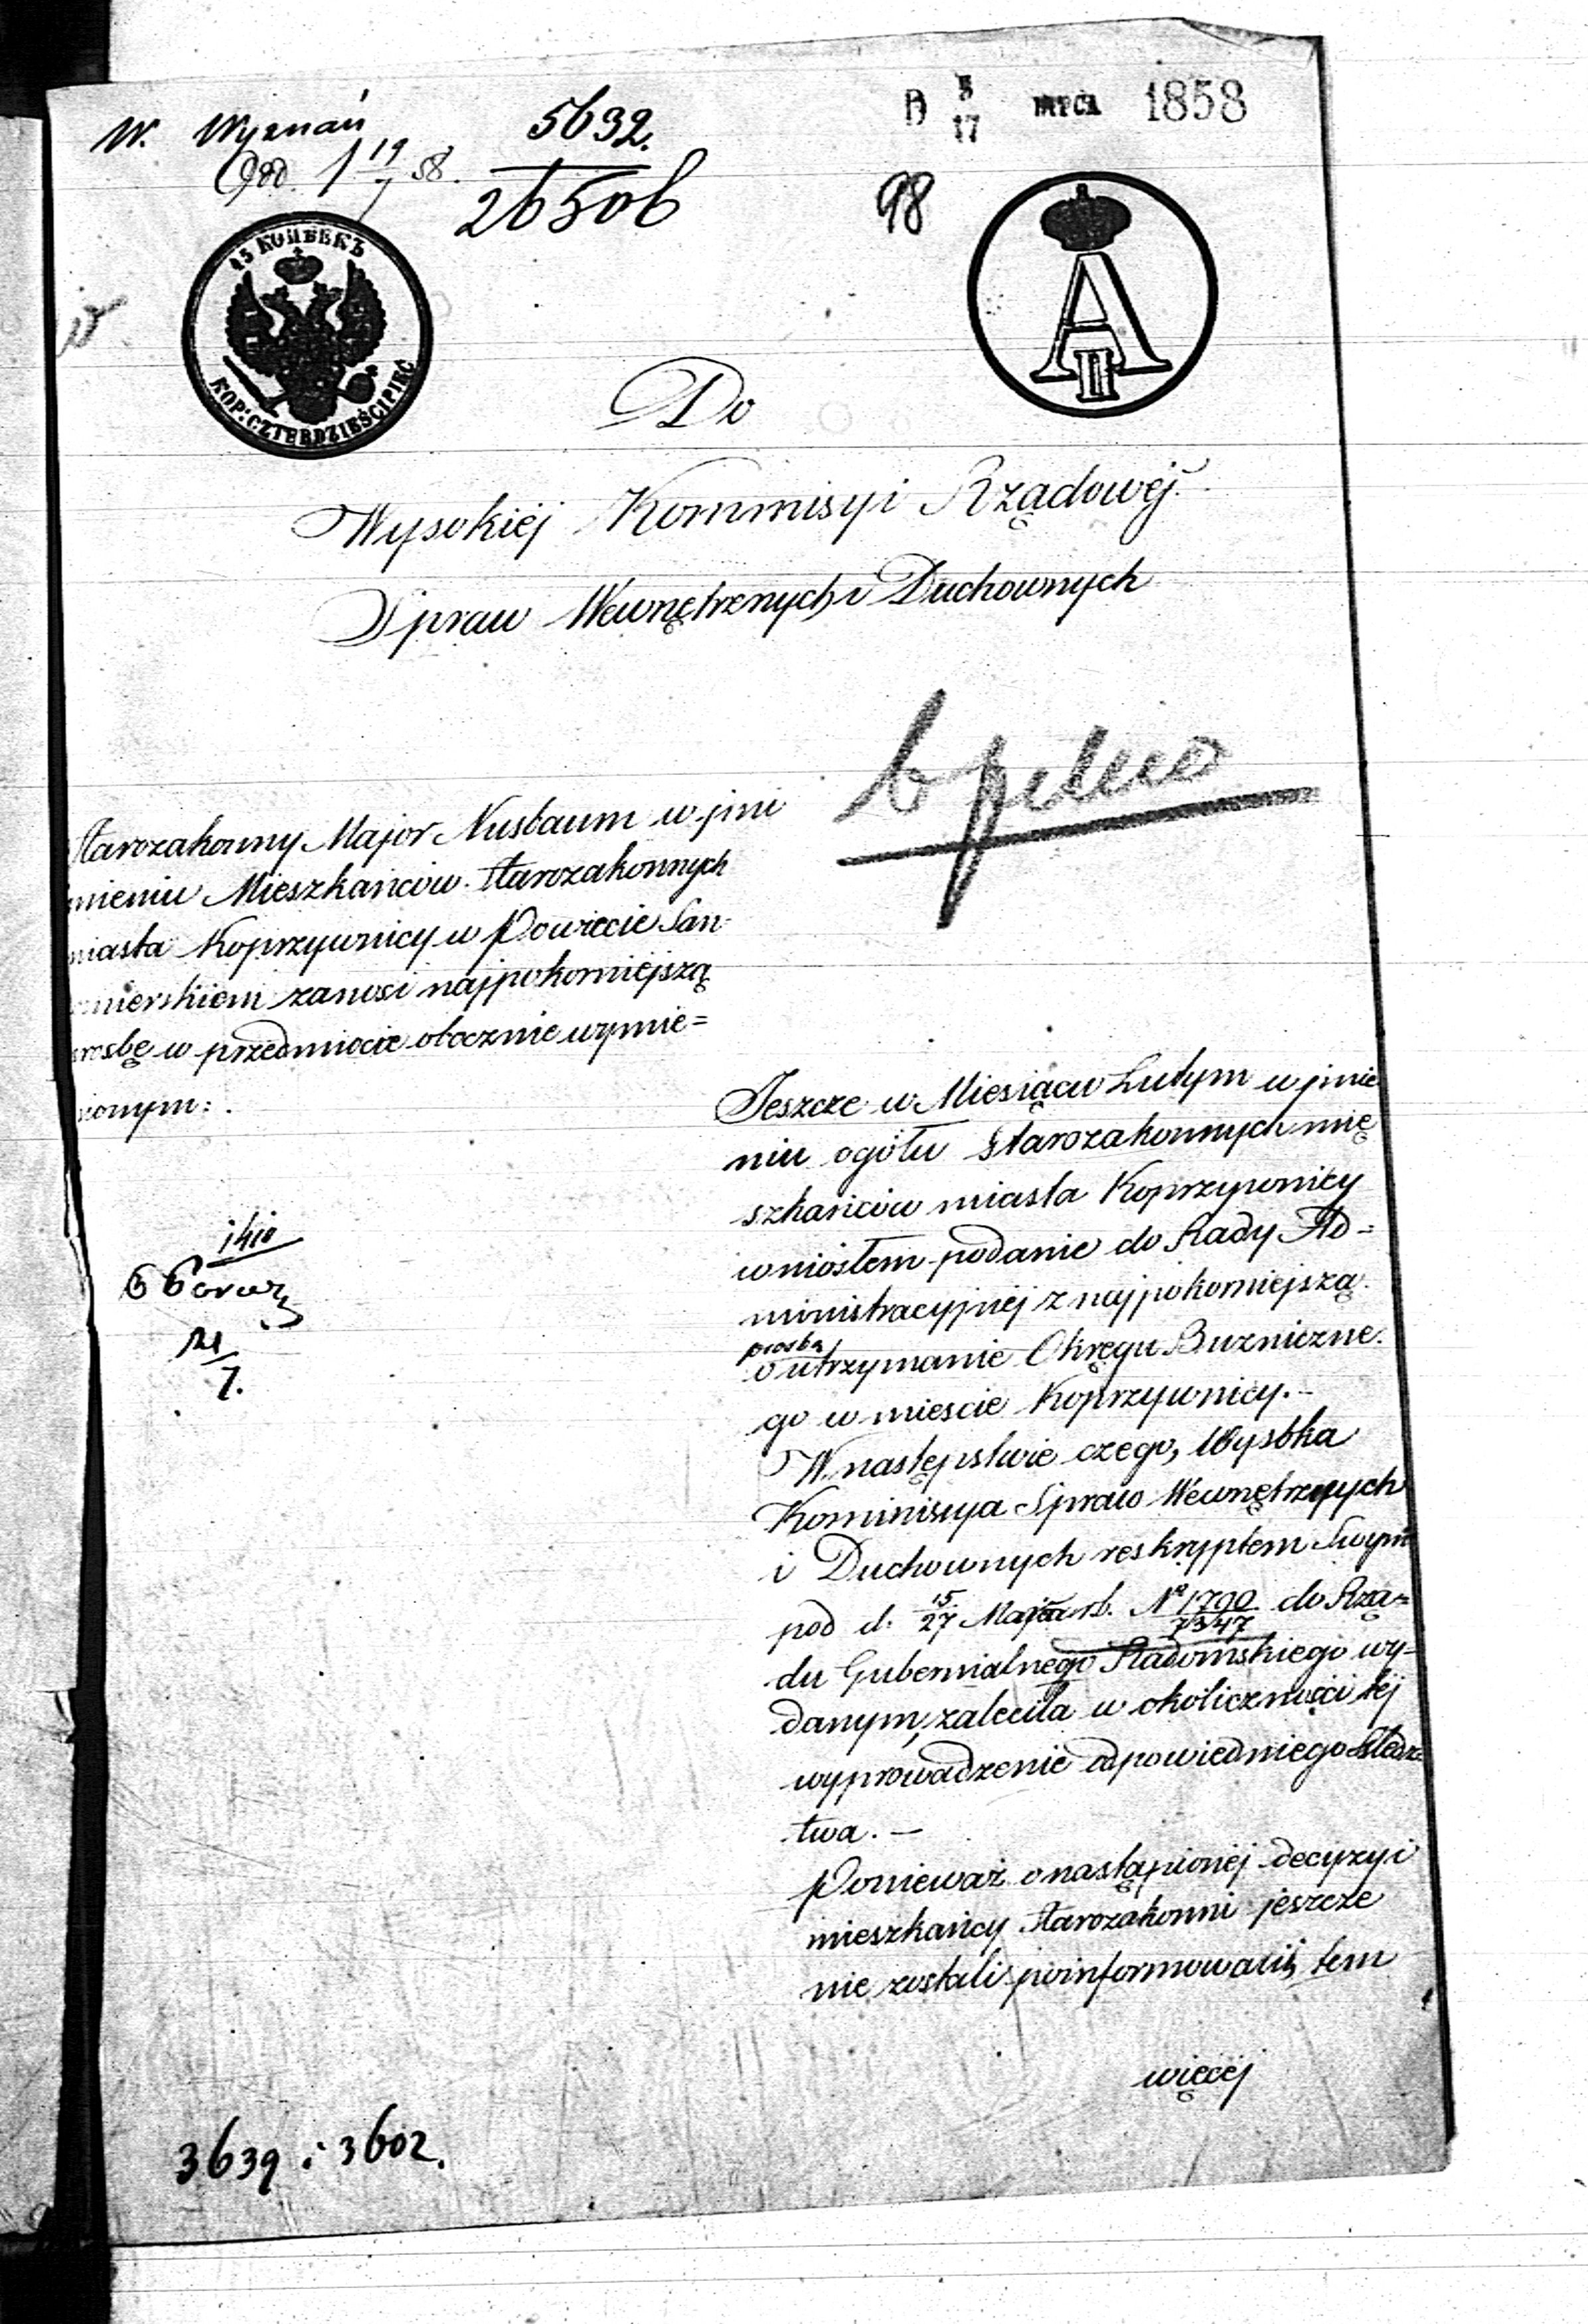 W. Wyznań
5632.
26506
Odd. 1 19/7 58.
5/17 1858
98
45 КОПѢЕКЪ
KOP: CZTERDZIEŚCI PIĘĆ
A II
Do
Wysokiéj Kommisyi Rządowéj
Spraw Wewnętrznych i Duchownych
Starozakonny Major Nusbaum w jmi
mieniu Mieszkańców Starozakonnych
miasta Koprzywnicy w Powiecie San-
mierskiem zanosi najpokorniejszą
prosbę w przedmiocie obocznie wymie=
nionym:
Jeszcze w Miesiącu Lutym w jmie
niu ogółu Starozakonnych mię
szkańców miasta Koprzywnicy
wniosłem podanie do Rady Ad=
ministracyjnéj z najpokorniejszą
prosbą
o utrzymanie Okręgu Bużniczne.
go w miescie Koprzywnicy.-
W następstwie czego, Wysoka
Kommisya Spraw Wewnętrznych
i Duchownych reskryptem Swym
pod d. 15/27 Maja rb. Nº 1790/7347 do Rzą=
du Gubernialnego Radomskiego wy-
danym, zaleciła w okoliczności téj
wyprowadzenie odpowiedniego Sledz=
twa. —
Ponieważ o nastąpionéj decyzyi
mieszkańcy Starozakonni jeszcze
nie zostali poinformowani, tem
więcéj
1410
21/7.
3639 i 3602.